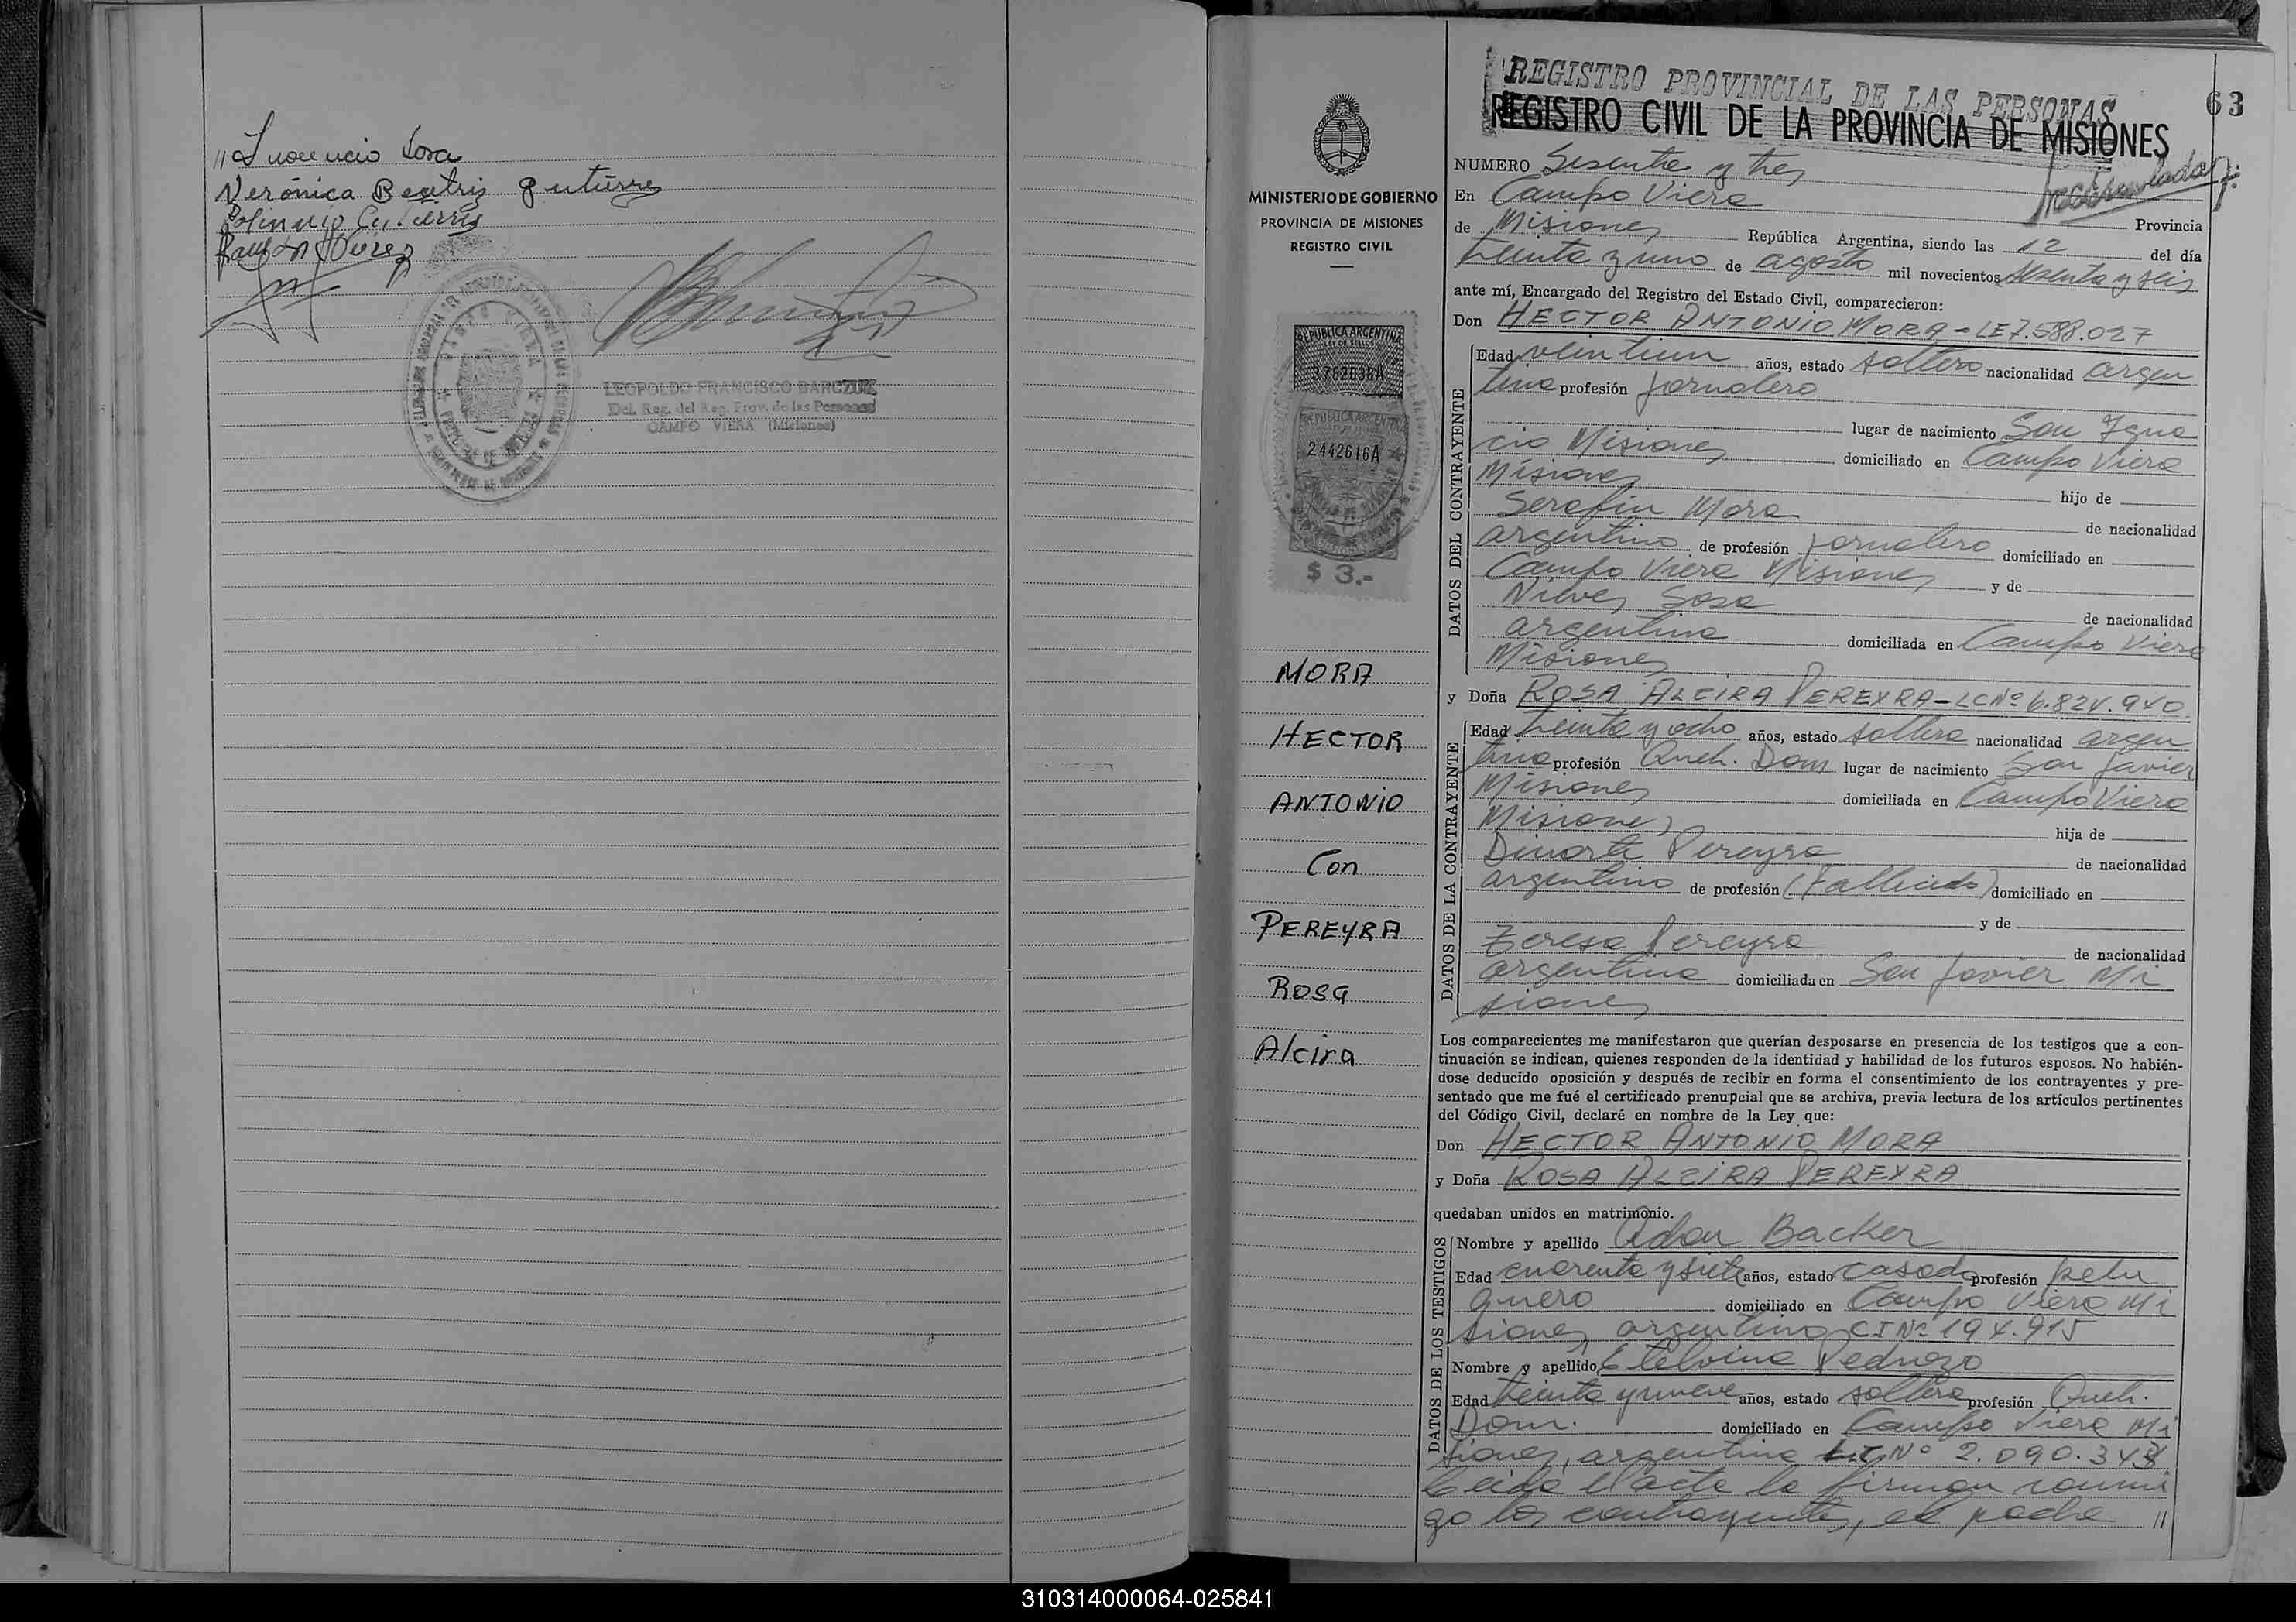 // Inocencio Sosa
Verónica Beatriz Gutiérrez
Ramón
LEOPOLDO FRANCISCO BARCZUK
Del. Reg. del Reg. Prov. de las Personas
CAMPO VIERA (Misiones)
MINISTERIO DE GOBIERNO
PROVINCIA DE MISIONES
REGISTRO CIVIL
REPUBLICA ARGENTINA
LEY DE SELLOS
REPUBLICA ARGENTINA
2442616A
$ 3.-
MORA
HECTOR
ANTONIO
Con
PEREYRA
ROSA
Alcira
REGISTRO PROVINCIAL DE LAS PERSONAS
63
REGISTRO CIVIL DE LA PROVINCIA DE MISIONES
NUMERO Sesenta y tres
En Campo Viera Provincia
de Misiones República Argentina, siendo las 12 del día
treinta y uno de agosto mil novecientos setenta y seis
ante mí, Encargado del Registro del Estado Civil, comparecieron:
Don HECTOR ANTONIO MORA - LE 7.588.027
DATOS DEL CONTRAYENTE
Edad veintiun años, estado soltero nacionalidad argen
tina profesión jornalero
lugar de nacimiento San Igna
cio Misiones domiciliado en Campo Viera
Misiones hijo de
Serafin Mora de nacionalidad
argentino de profesión jornalero domiciliado en
Campo Viera Misiones y de
Nieves Sosa de nacionalidad
argentina domiciliada en Campo Viera
Misiones
y Doña ROSA ALCIRA PEREYRA - LC Nº 6.824.940
DATOS DE LA CONTRAYENTE
Edad treinta y ocho años, estado soltera nacionalidad argen
tina profesión Queh. Dom lugar de nacimiento San Javier
Misiones domiciliada en Campo Viera
Misiones hija de
Dinarte Pereyra de nacionalidad
argentino de profesión (Fallecido) domiciliado en
y de
Teresa Pereyra de nacionalidad
argentina domiciliada en San Javier Mi
siones
Los comparecientes me manifestaron que querían desposarse en presencia de los testigos que a con-
tinuación se indican, quienes responden de la identidad y habilidad de los futuros esposos. No habién-
dose deducido oposición y después de recibir en forma el consentimiento de los contrayentes y pre-
sentado que me fué el certificado prenupcial que se archiva, previa lectura de los artículos pertinentes
del Código Civil, declaré en nombre de la Ley que:
Don HECTOR ANTONIO MORA
y Doña ROSA ALCIRA PEREYRA
quedaban unidos en matrimonio.
DATOS DE LOS TESTIGOS
Nombre y apellido Adan Backer
Edad cuarenta y siete años, estado casado profesión pelu
quero domiciliado en Campo Viera Mi
siones argentino CI Nº 194.915
Nombre y apellido Etelvina Pedrozo
Edad treinta y nueve años, estado soltera profesión Queh.
Dom. domiciliado en Campo Viera Mi
siones, argentina Nº 2.090.343
Leida el acta la firman conmi
go los contrayentes, el padre //
310314000064-025841